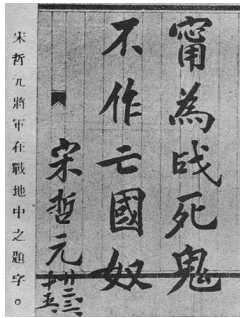 甯為战死鬼
不作亡國奴
宋哲元
廿二三
十五
宋哲元將軍在戰地中之題字。